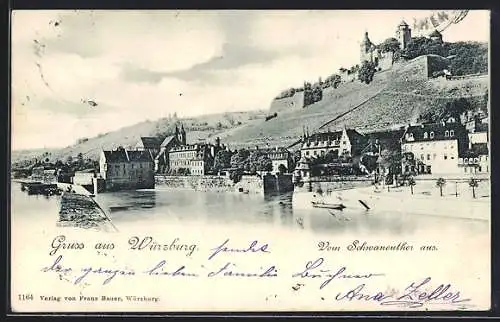 MEN
Gruss aus Würzburg. sendet Vom Schwanenther aus.
der ganzen lieben Familie
Ana Zeller
1164 Verlag von Franz Bauer, Würzburg.